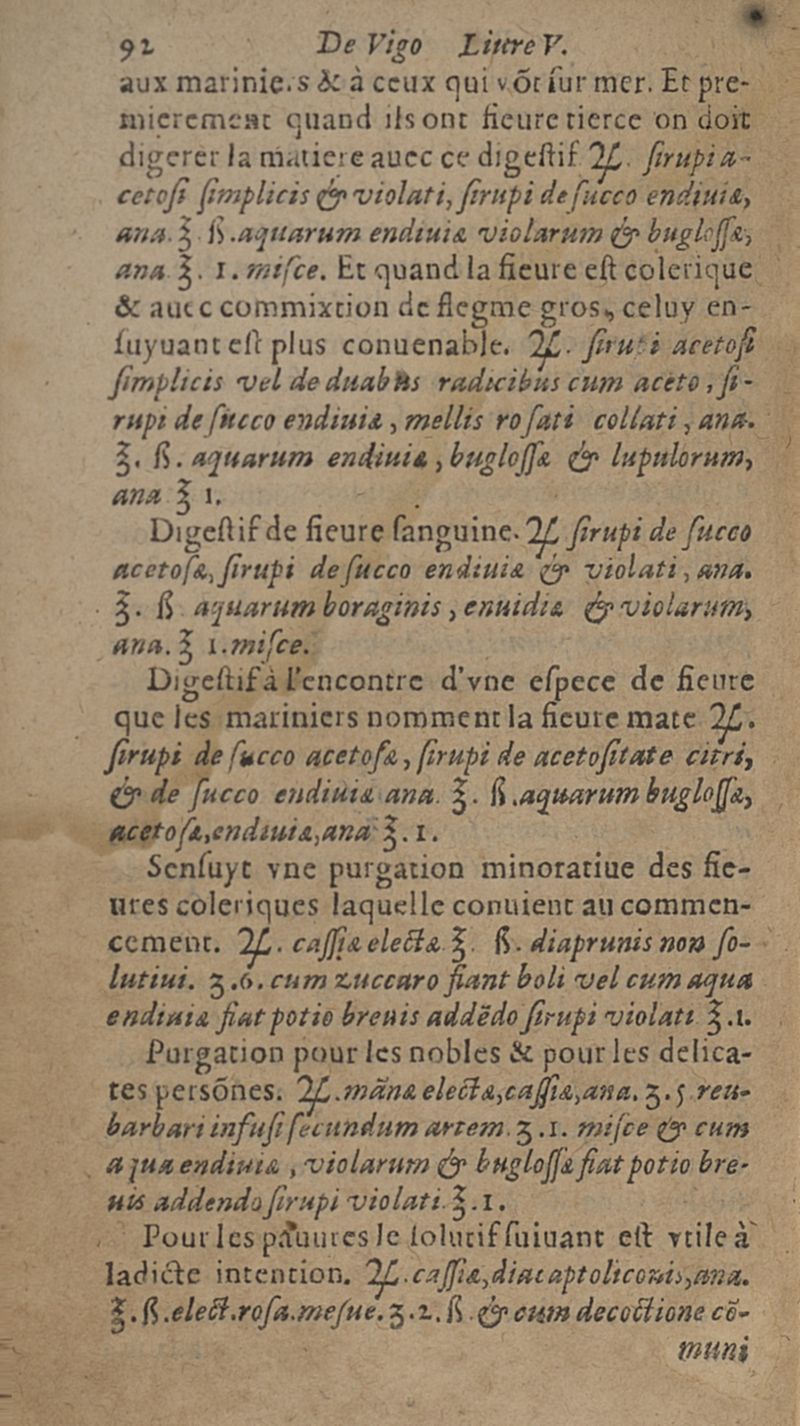 92 De Vigo Liure V.
aux mariniers & à ceux qui võt ſur mer. Et pre-
mierement quand ils ont fieure tierce on doit
digerer la matiere auec ce digeſtif ℞. ſirupi a-
cetoſi ſimplicis & violati, ſirupi de ſucco endiuiæ,
ana. ℥ ß. aquarum endiuiæ violarum & bugloſſæ,
ana ℥. 1. miſce. Et quand la fieure eſt colerique
& auec commixtion de flegme gros, celuy en-
ſuyuant eſt plus conuenable. ℞. ſirupi acetoſi
ſimplicis vel de duabus radicibus cum aceto, ſi-
rupi de ſucco endiuiæ, mellis roſati collati, ana.
℥. ß. aquarum endiuiæ, bugloſſæ & lupulorum,
ana ℥ 1.
Digeſtif de fieure ſanguine. ℞ ſirupi de ſucco
acetoſæ, ſirupi de ſucco endiuiæ & violati, ana.
℥. ß. aquarum boraginis, enuidiæ & violarum,
ana. ℥ 1. miſce.
Digeſtif à l'encontre d'vne eſpece de fieure
que les mariniers nomment la fieure mate ℞.
ſirupi de ſucco acetoſæ, ſirupi de acetoſitate citri,
& de ſucco endiuiæ ana. ℥. ß. aquarum bugloſſæ,
acetoſæ, endiuiæ, ana ℥. 1.
Senſuyt vne purgation minoratiue des fie-
ures coleriques laquelle conuient au commen-
cement. ℞. caſſiæ electæ ℥. ß. diaprunis non ſo-
lutiui. ʒ. 6. cum zuccaro fiant boli vel cum aqua
endiuiæ fiat potio breuis addẽdo ſirupi violati ℥. 1.
Purgation pour les nobles & pour les delica-
tes persõnes. ℞. mãnæ electæ, caſſiæ, ana. ʒ. 5 reu-
barbari infuſi ſecundum artem. ʒ. 1. miſce & cum
aqua endiuiæ, violarum & bugloſſæ fiat potio bre-
uis addendo ſirupi violati. ℥. 1.
Pour les pauures le ſolutif ſuiuant eſt vtile à
ladicte intention. ℞. caſſiæ, diacaptoliconis, ana.
℥. ß. elect. roſa. meſue. ʒ. 2. ß. & cum decoctione cõ-
muni